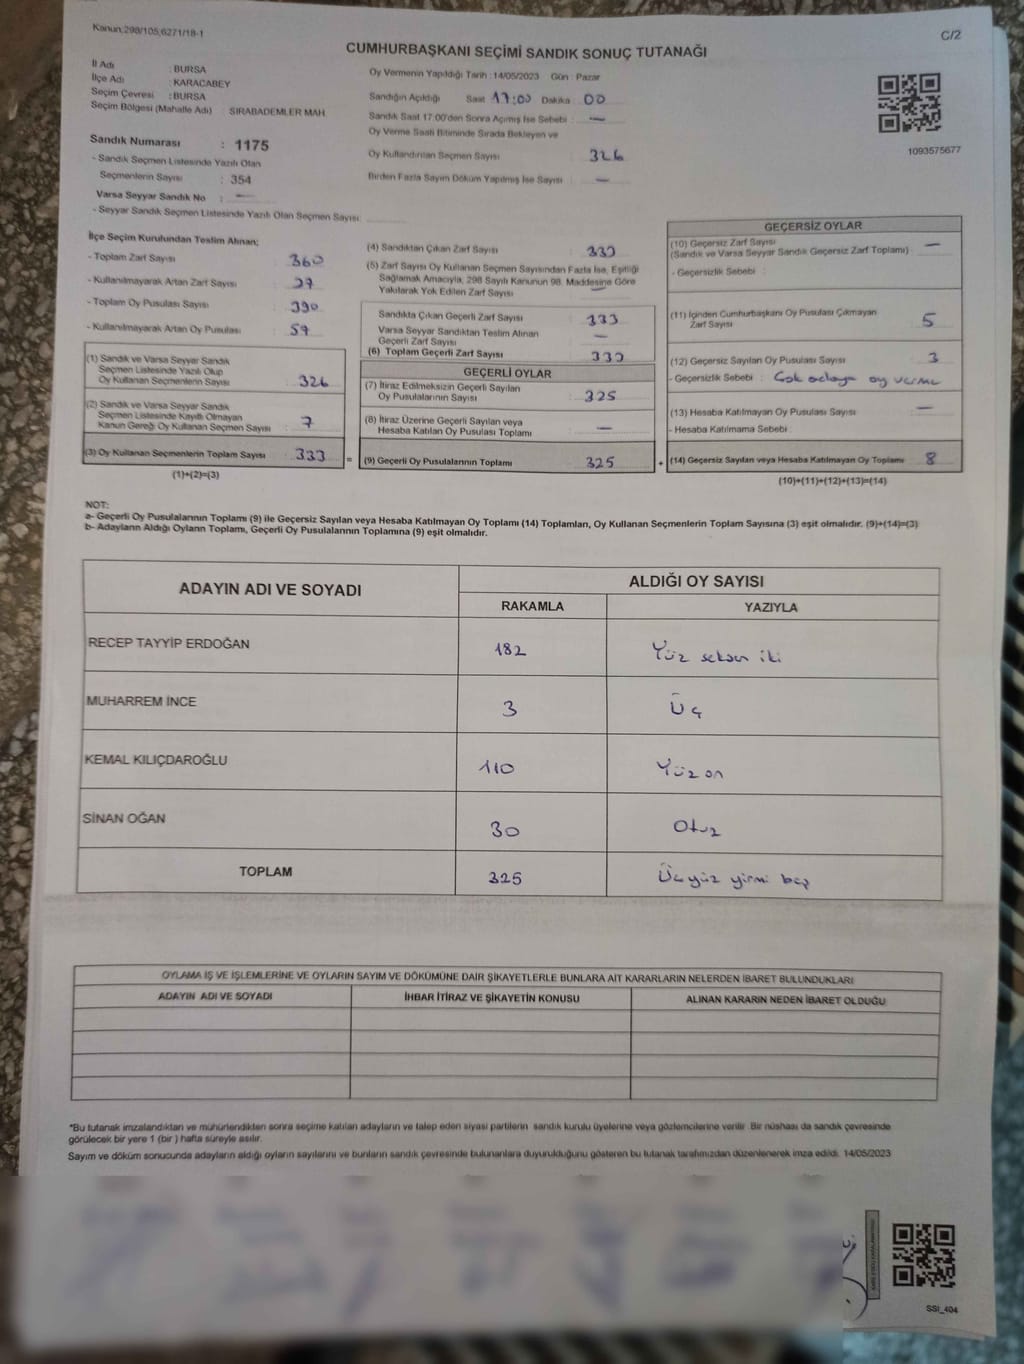 Kanun:298/105,6271/18-1
C/2
CUMHURBAŞKANI SEÇİMİ SANDIK SONUÇ TUTANAĞI
İl Adı : BURSA
İlçe Adı : KARACABEY
Seçim Çevresi : BURSA
Seçim Bölgesi (Mahalle Adı) SIRABADEMLER MAH
Oy Vermenin Yapıldığı Tarih : 14/05/2023 Gün : Pazar
Sandığın Açıldığı Saat 17:00 Dakika 00
Sandık Saat 17:00'den Sonra Açımış İse Sebebi : —
Oy Verme Saati Bitiminde Sırada Bekleyen ve
Oy Kullandırılan Seçmen Sayısı 326
Birden Fazla Sayım Döküm Yapılmış İse Sayısı : —
1093575677
Sandık Numarası : 1175
- Sandık Seçmen Listesinde Yazılı Olan
Seçmenlerin Sayısı : 354
Varsa Seyyar Sandık No : —
- Seyyar Sandık Seçmen Listesinde Yazılı Olan Seçmen Sayısı:
İlçe Seçim Kurulundan Teslim Alınan;
- Toplam Zarf Sayısı : 360
- Kullanılmayarak Artan Zarf Sayısı : 27
- Toplam Oy Pusulası Sayısı : 390
- Kullanılmayarak Artan Oy Pusulası : 57
(1) Sandık ve Varsa Seyyar Sandık
Seçmen Listesinde Yazılı Olup
Oy Kullanan Seçmenlerin Sayısı : 326
(2) Sandık ve Varsa Seyyar Sandık
Seçmen Listesinde Kayıtlı Olmayan
Kanun Gereği Oy Kullanan Seçmen Sayısı : 7
(3) Oy Kullanan Seçmenlerin Toplam Sayısı : 333
(1)+(2)=(3)
(4) Sandıktan Çıkan Zarf Sayısı : 333
(5) Zarf Sayısı Oy Kullanan Seçmen Sayısından Fazla İse, Eşitliği
Sağlamak Amacıyla, 298 Sayılı Kanunun 98. Maddesine Göre
Yakılarak Yok Edilen Zarf Sayısı : —
Sandıkta Çıkan Geçerli Zarf Sayısı : 333
Varsa Seyyar Sandıktan Teslim Alınan
Geçerli Zarf Sayısı : —
(6) Toplam Geçerli Zarf Sayısı : 333
GEÇERLİ OYLAR
(7) İtiraz Edilmeksizin Geçerli Sayılan
Oy Pusulalarının Sayısı : 325
(8) İtiraz Üzerine Geçerli Sayılan veya
Hesaba Katılan Oy Pusulası Toplamı : —
= (9) Geçerli Oy Pusulalarının Toplamı : 325
GEÇERSİZ OYLAR
(10) Geçersiz Zarf Sayısı
(Sandık ve Varsa Seyyar Sandık Geçersiz Zarf Toplamı) : —
- Geçersizlik Sebebi :
(11) İçinden Cumhurbaşkanı Oy Pusulası Çıkmayan
Zarf Sayısı : 5
(12) Geçersiz Sayılan Oy Pusulası Sayısı : 3
- Geçersizlik Sebebi : Çok adaya oy verme
(13) Hesaba Katılmayan Oy Pusulası Sayısı : —
- Hesaba Katılmama Sebebi :
+ (14) Geçersiz Sayılan veya Hesaba Katılmayan Oy Toplamı : 8
(10)+(11)+(12)+(13)=(14)
NOT:
a- Geçerli Oy Pusulalarının Toplamı (9) ile Geçersiz Sayılan veya Hesaba Katılmayan Oy Toplamı (14) Toplamları, Oy Kullanan Seçmenlerin Toplam Sayısına (3) eşit olmalıdır. (9)+(14)=(3)
b- Adayların Aldığı Oyların Toplamı, Geçerli Oy Pusulalarının Toplamına (9) eşit olmalıdır.
ADAYIN ADI VE SOYADI
ALDIĞI OY SAYISI
RAKAMLA YAZIYLA
RECEP TAYYİP ERDOĞAN 182 Yüz seksen iki
MUHARREM İNCE 3 Üç
KEMAL KILIÇDAROĞLU 110 Yüz on
SİNAN OĞAN 30 Otuz
TOPLAM 325 Üçyüz yirmi beş
OYLAMA İŞ VE İŞLEMLERİNE VE OYLARIN SAYIM VE DÖKÜMÜNE DAİR ŞİKAYETLERLE BUNLARA AİT KARARLARIN NELERDEN İBARET BULUNDUKLARI
ADAYIN ADI VE SOYADI İHBAR İTİRAZ VE ŞİKAYETİN KONUSU ALINAN KARARIN NEDEN İBARET OLDUĞU
*Bu tutanak imzalandıktan ve mühürlendikten sonra seçime katılan adayların ve talep eden siyasi partilerin sandık kurulu üyelerine veya gözlemcilerine verilir. Bir nüshası da sandık çevresinde
görülecek bir yere 1 (bir ) hafta süreyle asılır.
Sayım ve döküm sonucunda adayların aldığı oyların sayılarını ve bunların sandık çevresinde bulunanlara duyurulduğunu gösteren bu tutanak tarafımızdan düzenlenerek imza edildi. 14/05/2023
SSI_404